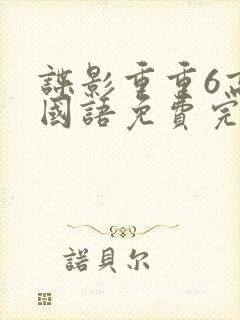 諜影重重6高
國語免費完
諾貝尔